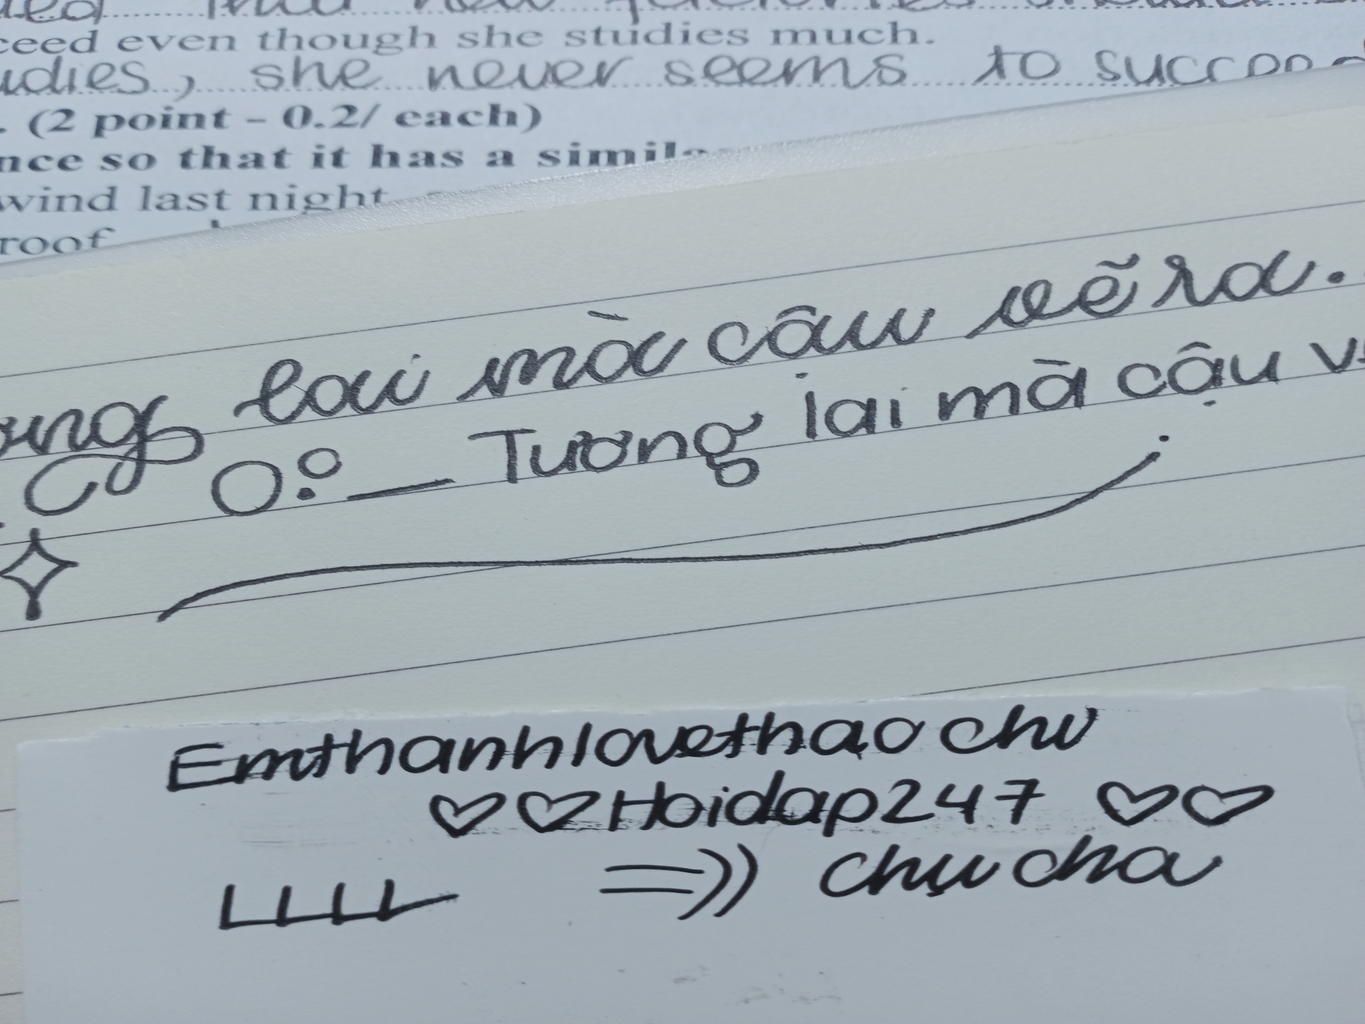 ceed even though she studies much.
udies, she never seems to succeed
. (2 point - 0.2/ each)
nce so that it has a simila
wind last night
roof
ơng lai mà cậu vẽ ra.
Tương lai mà cậu v
Emthanhlovethaochu
Hoidap247
=)) chu cha